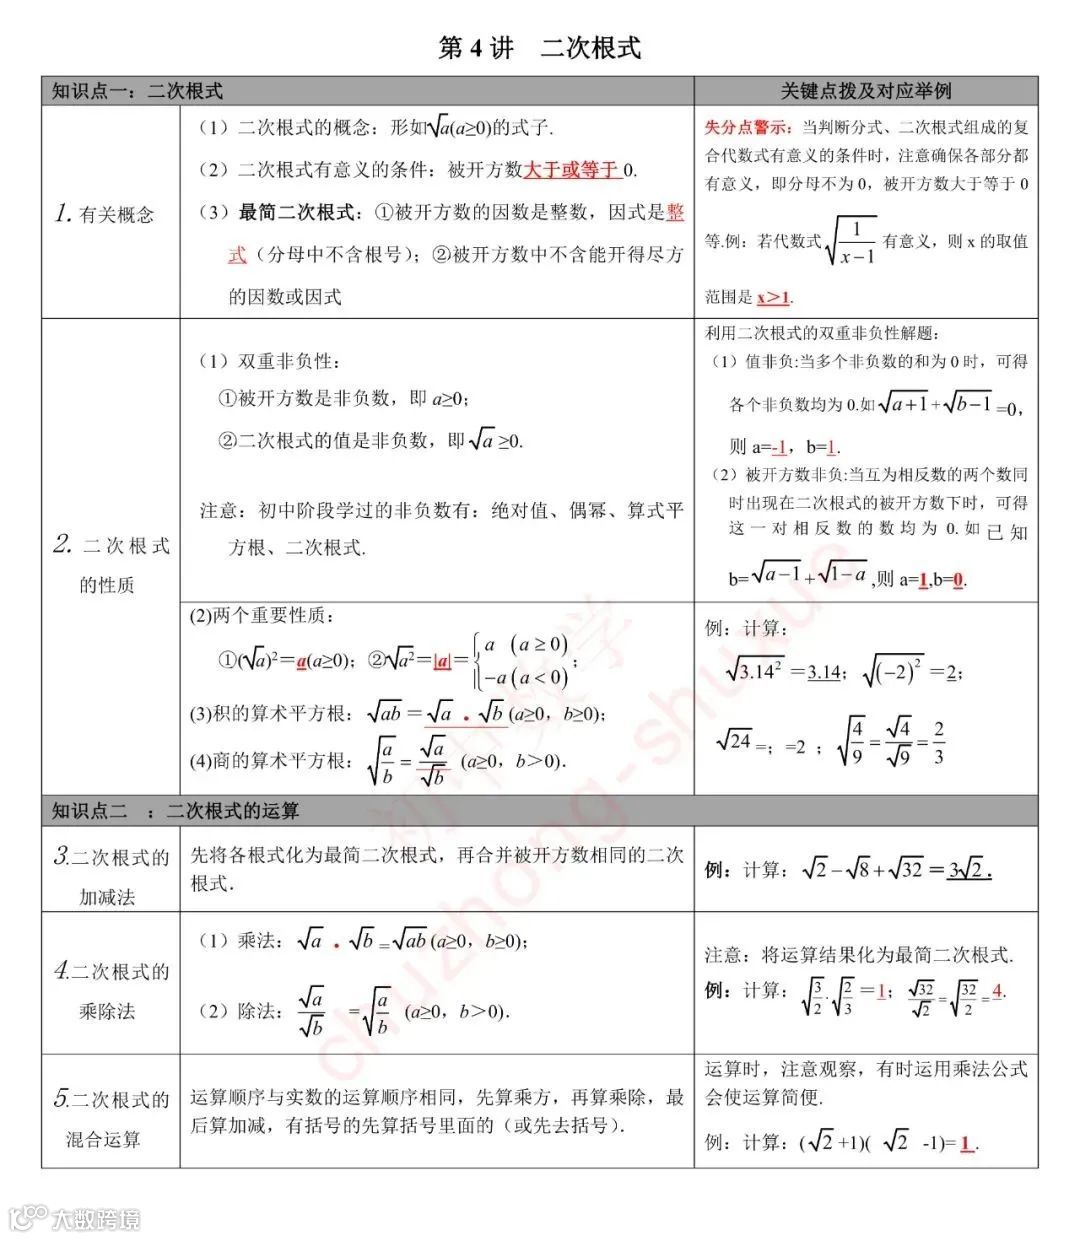 第 4 讲 二次根式
知识点一：二次根式
关键点拨及对应举例
1. 有关概念
（1）二次根式的概念：形如√a(a≥0)的式子.
（2）二次根式有意义的条件：被开方数大于或等于 0.
（3）最简二次根式：①被开方数的因数是整数，因式是整
式（分母中不含根号）；②被开方数中不含能开得尽方
的因数或因式
失分点警示：当判断分式、二次根式组成的复
合代数式有意义的条件时，注意确保各部分都
有意义，即分母不为 0，被开方数大于等于 0
等.例：若代数式√(1/(x−1)) 有意义，则 x 的取值
范围是 x＞1.
2. 二次根式
的性质
（1）双重非负性：
①被开方数是非负数，即 a≥0；
②二次根式的值是非负数，即√a ≥0.
注意：初中阶段学过的非负数有：绝对值、偶幂、算式平
方根、二次根式.
利用二次根式的双重非负性解题：
（1）值非负:当多个非负数的和为 0 时，可得
各个非负数均为 0.如√(a+1)+√(b−1)=0，
则 a=-1，b=1.
（2）被开方数非负:当互为相反数的两个数同
时出现在二次根式的被开方数下时，可得
这一对相反数的数均为 0.如已知
b=√(a−1)+√(1−a),则 a=1,b=0.
(2)两个重要性质：
①(√a)²＝a(a≥0)；②√a²＝|a|＝{a (a≥0) −a (a<0)；
(3)积的算术平方根：√ab＝√a·√b (a≥0，b≥0)；
(4)商的算术平方根：√(a/b)＝√a/√b (a≥0，b＞0).
例：计算：
√3.14²＝3.14；√(−2)²＝2；
√24＝；=2 ；√(4/9)＝√4/√9＝2/3
知识点二 ：二次根式的运算
3.二次根式的
加减法
先将各根式化为最简二次根式，再合并被开方数相同的二次
根式.
例：计算：√2−√8+√32＝3√2.
4.二次根式的
乘除法
（1）乘法：√a·√b=√ab(a≥0，b≥0)；
（2）除法：√a/√b =√(a/b) (a≥0，b＞0).
注意：将运算结果化为最简二次根式.
例：计算：√(3/2)·√(2/3)＝1；√32/√2=√(32/2)=4.
5.二次根式的
混合运算
运算顺序与实数的运算顺序相同，先算乘方，再算乘除，最
后算加减，有括号的先算括号里面的（或先去括号）.
运算时，注意观察，有时运用乘法公式
会使运算简便.
例：计算：(√2+1)( √2 -1)= 1 .
初中数学
chuzhong-shuxue
大数跨境